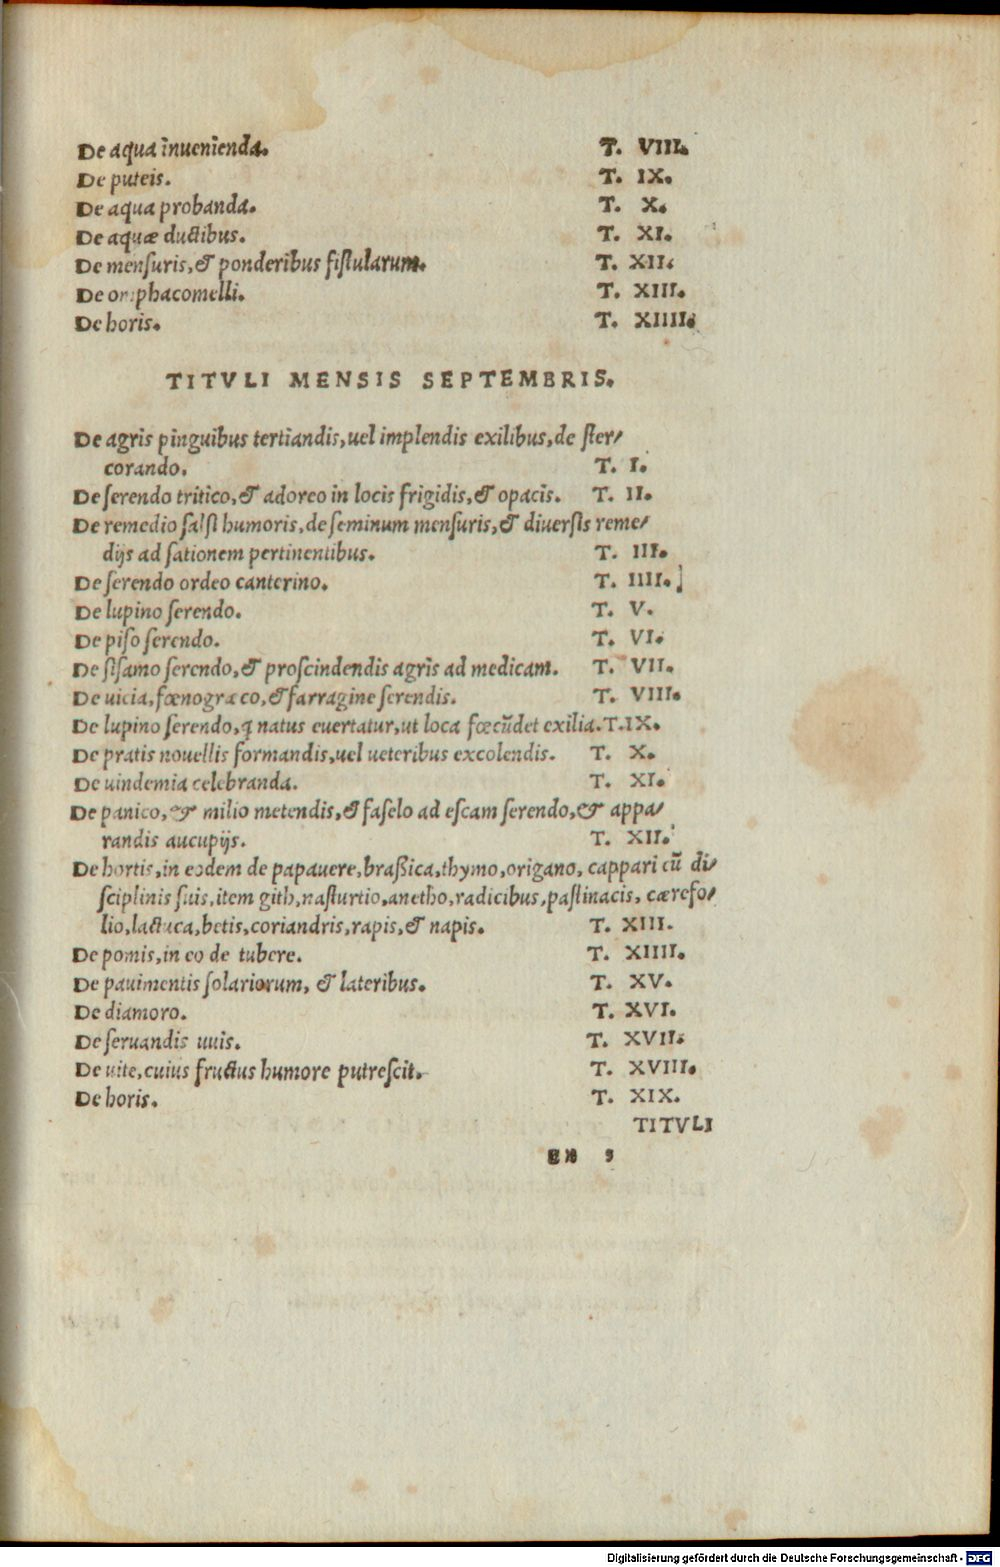 De aqua inuenienda. T. VIII.
De puteis. T. IX.
De aqua probanda. T. X.
De aquæ ductibus. T. XI.
De menſuris, & ponderibus fiſtularum. T. XII.
De omphacomelli. T. XIII.
De horis. T. XIIII.
TITVLI MENSIS SEPTEMBRIS.
De agris pinguibus tertiandis, uel implendis exilibus, de ſter/
corando. T. I.
De ſerendo tritico, & adoreo in locis frigidis, & opacis. T. II.
De remedio ſalſi humoris, de ſeminum menſuris, & diuerſis reme/
dijs ad ſationem pertinentibus. T. III.
De ſerendo ordeo canterino. T. IIII.
De lupino ſerendo. T. V.
De piſo ſerendo. T. VI.
De ſiſamo ſerendo, & proſcindendis agris ad medicam. T. VII.
De uicia, fœnogræco, & farragine ſerendis. T. VIII.
De lupino ſerendo, q natus euertatur, ut loca fœcūdet exilia. T. IX.
De pratis nouellis formandis, uel ueteribus excolendis. T. X.
De uindemia celebranda. T. XI.
De panico, & milio metendis, & faſelo ad eſcam ſerendo, & appa/
randis aucupijs. T. XII.
De hortis, in eodem de papauere, braßica, thymo, origano, cappari cū di/
ſciplinis ſuis, item gith, naſturtio, anetho, radicibus, paſtinacis, cærefo/
lio, lactuca, betis, coriandris, rapis, & napis. T. XIII.
De pomis, in eo de tubere. T. XIIII.
De pauimentis ſolariorum, & lateribus. T. XV.
De diamoro. T. XVI.
De ſeruandis uuis. T. XVII.
De uite, cuius fructus humore putreſcit. T. XVIII.
De horis. T. XIX.
TITVLI
Digitalisierung gefördert durch die Deutsche Forschungsgemeinschaft - DFG